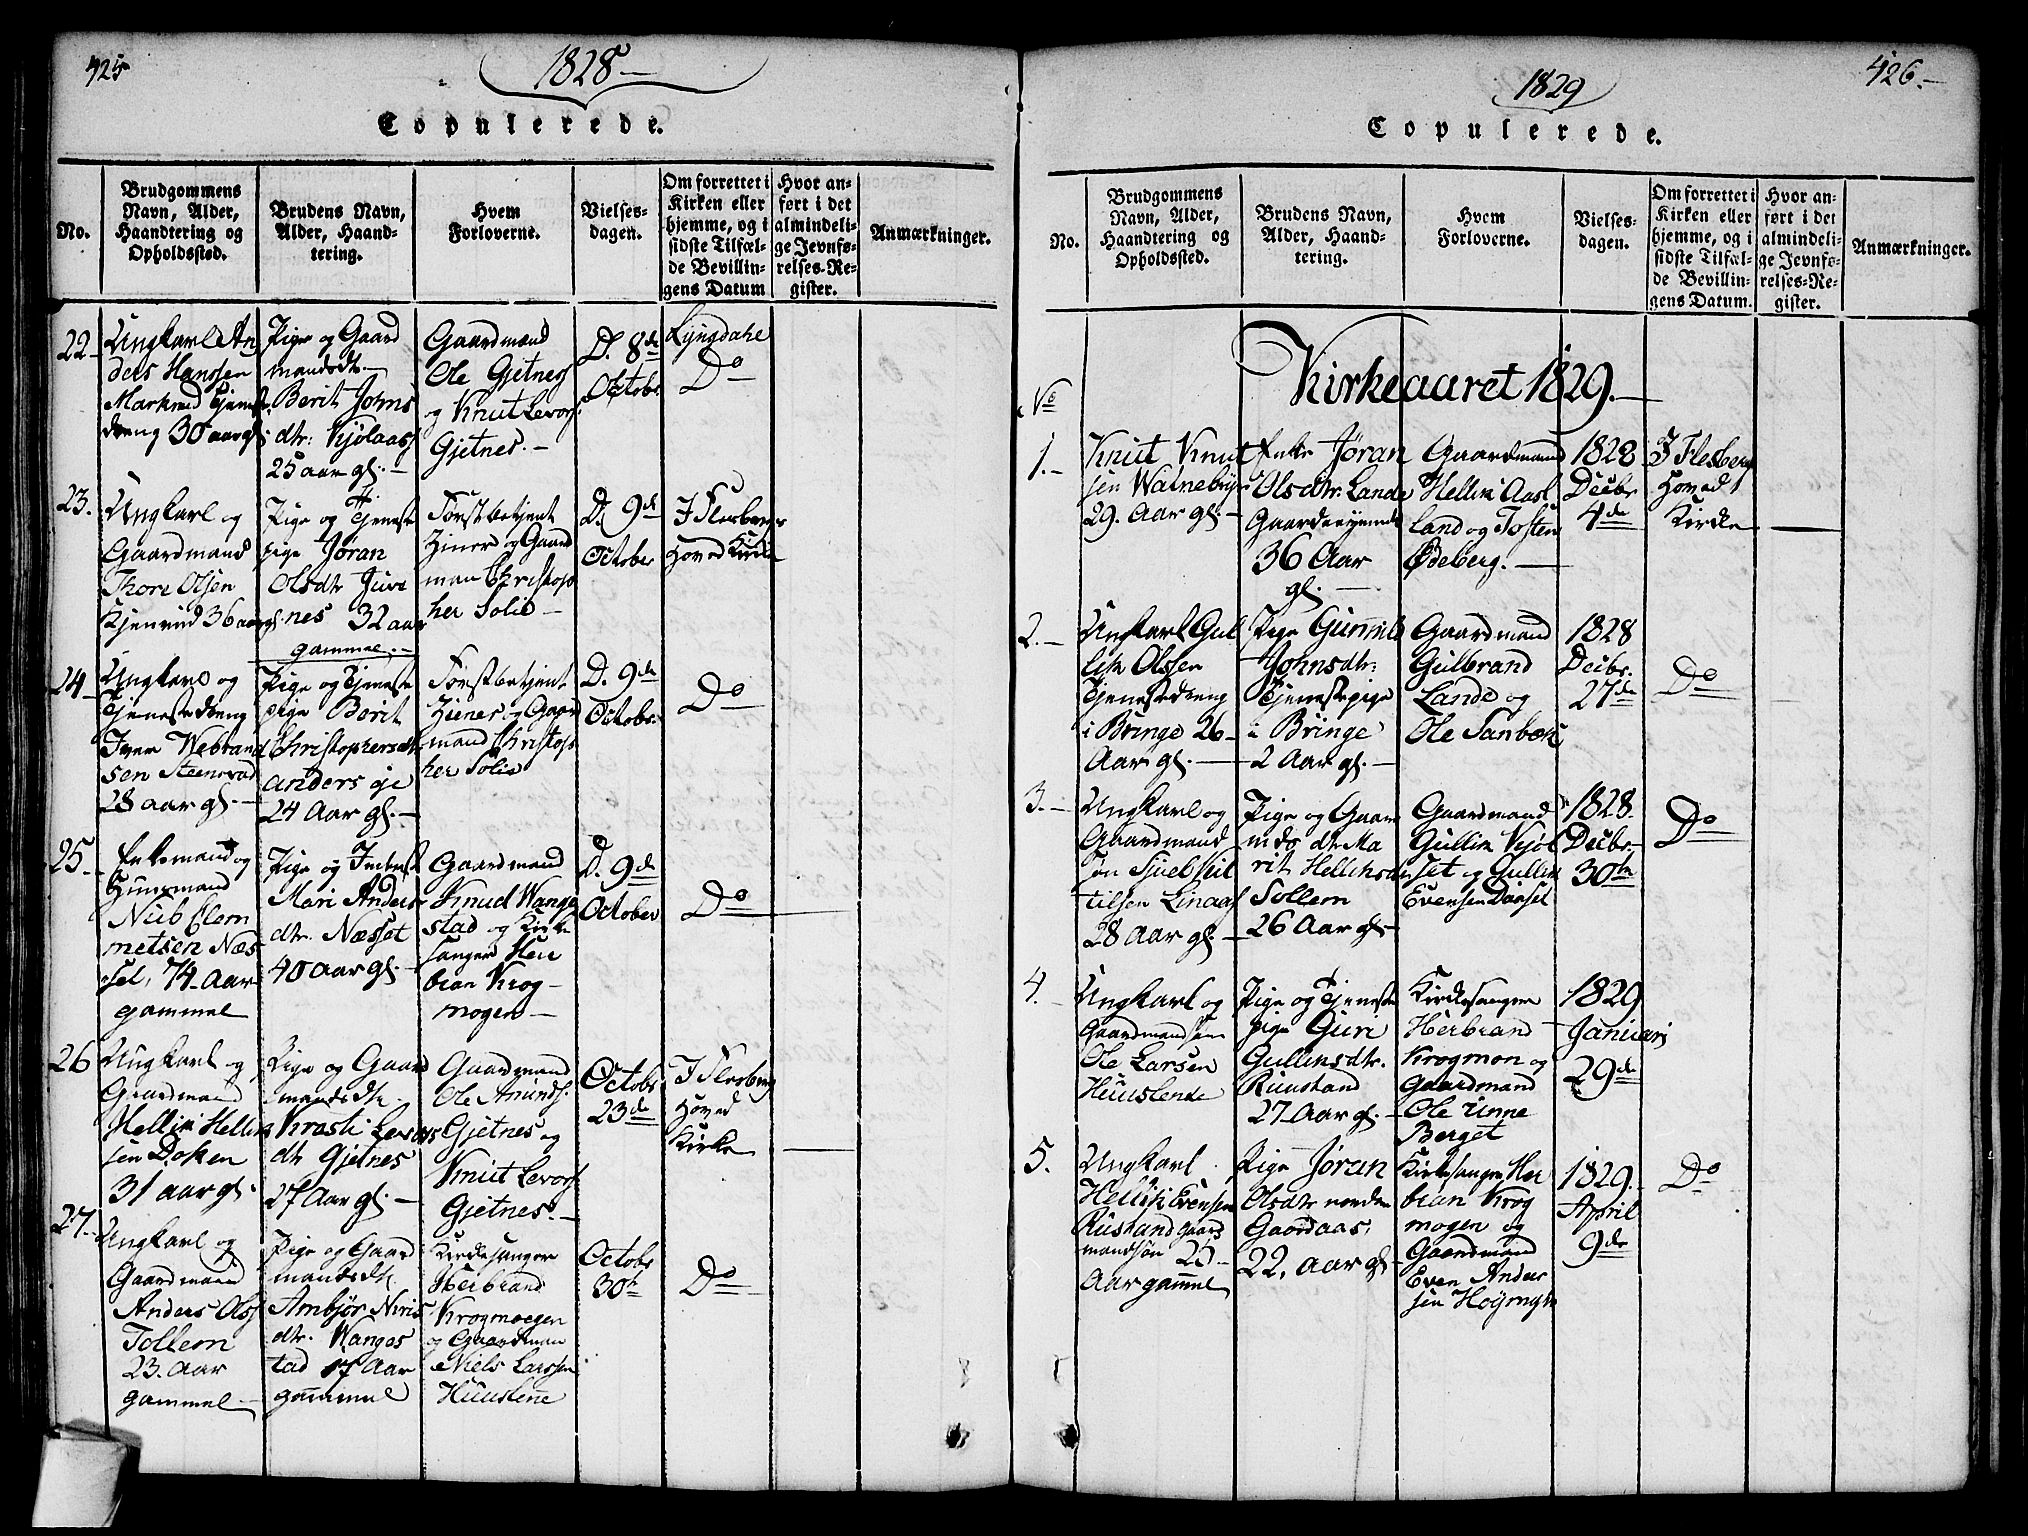 425
1828 —
Copulerede.
No.
Brudgommens
Navn, Alder,
Haandtering og
Opholdssted.
Brudens Navn,
Alder, Haand-
tering.
Hvem
Forloverne.
Vielses-
dagen.
Om forrettet i
Kirken eller
hjemme, og i
sidste Tilfæl-
de Bevillin-
gens Datum
Hvor an-
ført i det
almindeli-
ge Jevnfø-
relses-Re-
gister.
Anmærkninger.
22
Ungkarl An
ders Hanssen
Markrud Tjeneste
dreng 30 aar gl.
Pige og Gaard
mandsdtr.
Berit Johns
dtr: Kjølaas
25 aar gl. —
Gaardmænd
Ole Gjetnes
og Knut Levors.
Gjetnes. —
D. 8de
Octobr.
Lyngdahl
Do
23.
Ungkarl og
Gaardmand
Thore Olsen
Kjenrud 36 aar gl.
Pige og Tjeneste
pige Jøran
Olsdtr Juve
nes 32 aar
gammel. —
Forstbetjent
Ziener og Gaard
man Christop
her Solie —
D. 9de
October
I Flesbergs
Hoved Kirke
24
Ungkarl og
Tjenestedreng
Iver Webrand
sen Steensrud
28 aar gl. —
Pige og Tjeneste
pige Berit
Christophersdtr
anders eje
24 Aar gl. —
Forstbetjent
Ziener og Gaard
mand Christop
her Solie
D. 9de
Octobr.
Do
25.
Enkemand og
Huusmand
Niels Clem
metsen Næs
set, 74 Aar
gammel
Pige og
Mari Anders
dtr. Næsset
40 aar gl. —
Gaardmand
Knud Wange
stad og Kirke
sanger Her
bran Krog-
mogen —
D. 9de
October
Do
26
Ungkarl og
Gaardmand
Hellik Hellik
sen Doken
31 aar gl.
Pige og Gaard
mandsdtr.
Krosti Levors
dtr Gjetnes
27 Aar gl. —
Gaardmand
Ole Amunds.
Gjetnes og
Knut Levors
Gjetnes. —
Octobr
23de
I Flesberg
Hoved
Kirke
27.
Ungkarl og
Gaardmand
Anders Ols.
Tollern
23. Aar
gammel —
Pige og Gaard
mandsdtr.
Ambjør Niris
dtr. Wanges
tad 17 Aar
gammel
Kirkesanger
Herbrand
Krogmoegen
og Gaardman
Niels Larssen
Huuslene
Octobr
30te
Do
1829
426. —
Copulerede.
No.
Brudgommens
Navn, Alder,
Haandtering og
Opholdssted.
Brudens Navn,
Alder, Haand-
tering.
Hvem
Forloverne.
Vielses-
dagen.
Om forrettet i
Kirken eller
hjemme, og i
sidste Tilfæl-
de Bevillin-
gens Datum.
Hvor an-
ført i det
almindeli-
ge Jevnfø-
relses-Re-
gister.
Anmærkninger.
Kirkeaaret 1829. —
No
1. —
Knut Knut
sen Watnebryn
29. Aar gl. —
Enke Jøran
Olsdtr. Lande
36 Aar
gl. —
Gaardmand
Hellik Aasl
land og Tosten
Ødeberg. —
1828
Decbr
4de
I Flesberg
Hoved
Kirke
2. —
Ungkarl Gul
lik Olsen
Tjenestedreng
i Bringe 26
Aar gl. —
Pige Gunnild
Johnsdtr:
Tjenestepige
i Bringe
2 Aar gl. —
Gaardmand
Gulbrand
Lande og
Ole Sanbæk
1828
Decbr.
27de
Do
3. —
Ungkarl og
Gaardmand
Tøn
tilsen Linaas
28 Aar gl. —
Pige og Gaar
mds dtr Ma
rit Helliksdtr
Sollem
26 Aar gl. —
Gaardmand
Gullik Kjøl
set og Gullik
Evensen Daaset
1828.
Decbr. —
30te
Do
4.
Ungkarl og
Gaardmandsøn
Ole Larsen
Huuslende
Pige og Tjeneste
pige Guri
Gulliksdtr.
Ruustand
27 Aar gl. —
Kirkesanger
Herbrand
Krogmon og
Gaardmand
Ole Unne
Berget
1829
Januari
29de
5.
Ungkarl
Hellik Evensen
Rustand Gaard
mandsøn 25
Aar gammel
Pige Jøran
Olsdtr norden
Gaardaas,
22, aar gl. —
Kirkesanger Her
bran Krog
mogen og
Gaardmand
Even Anders
sen Høymyr
1829. —
April
9de
Do